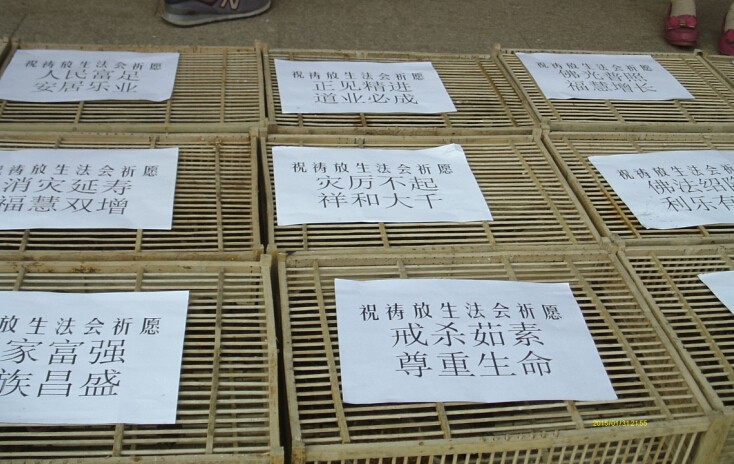 祝祷放生法会祈愿
人民富足
安居乐业
祝祷放生法会祈愿
正见精进
道业必成
祝祷放生法会祈愿
佛光普照
福慧增长
祷放生法会祈愿
消灾延寿
福慧双增
祝祷放生法会祈愿
灾厉不起
祥和大千
祝祷放生法会祈
佛法绍
利乐有
放生法会祈愿
家富强
族昌盛
祝祷放生法会祈愿
戒杀茹素
尊重生命